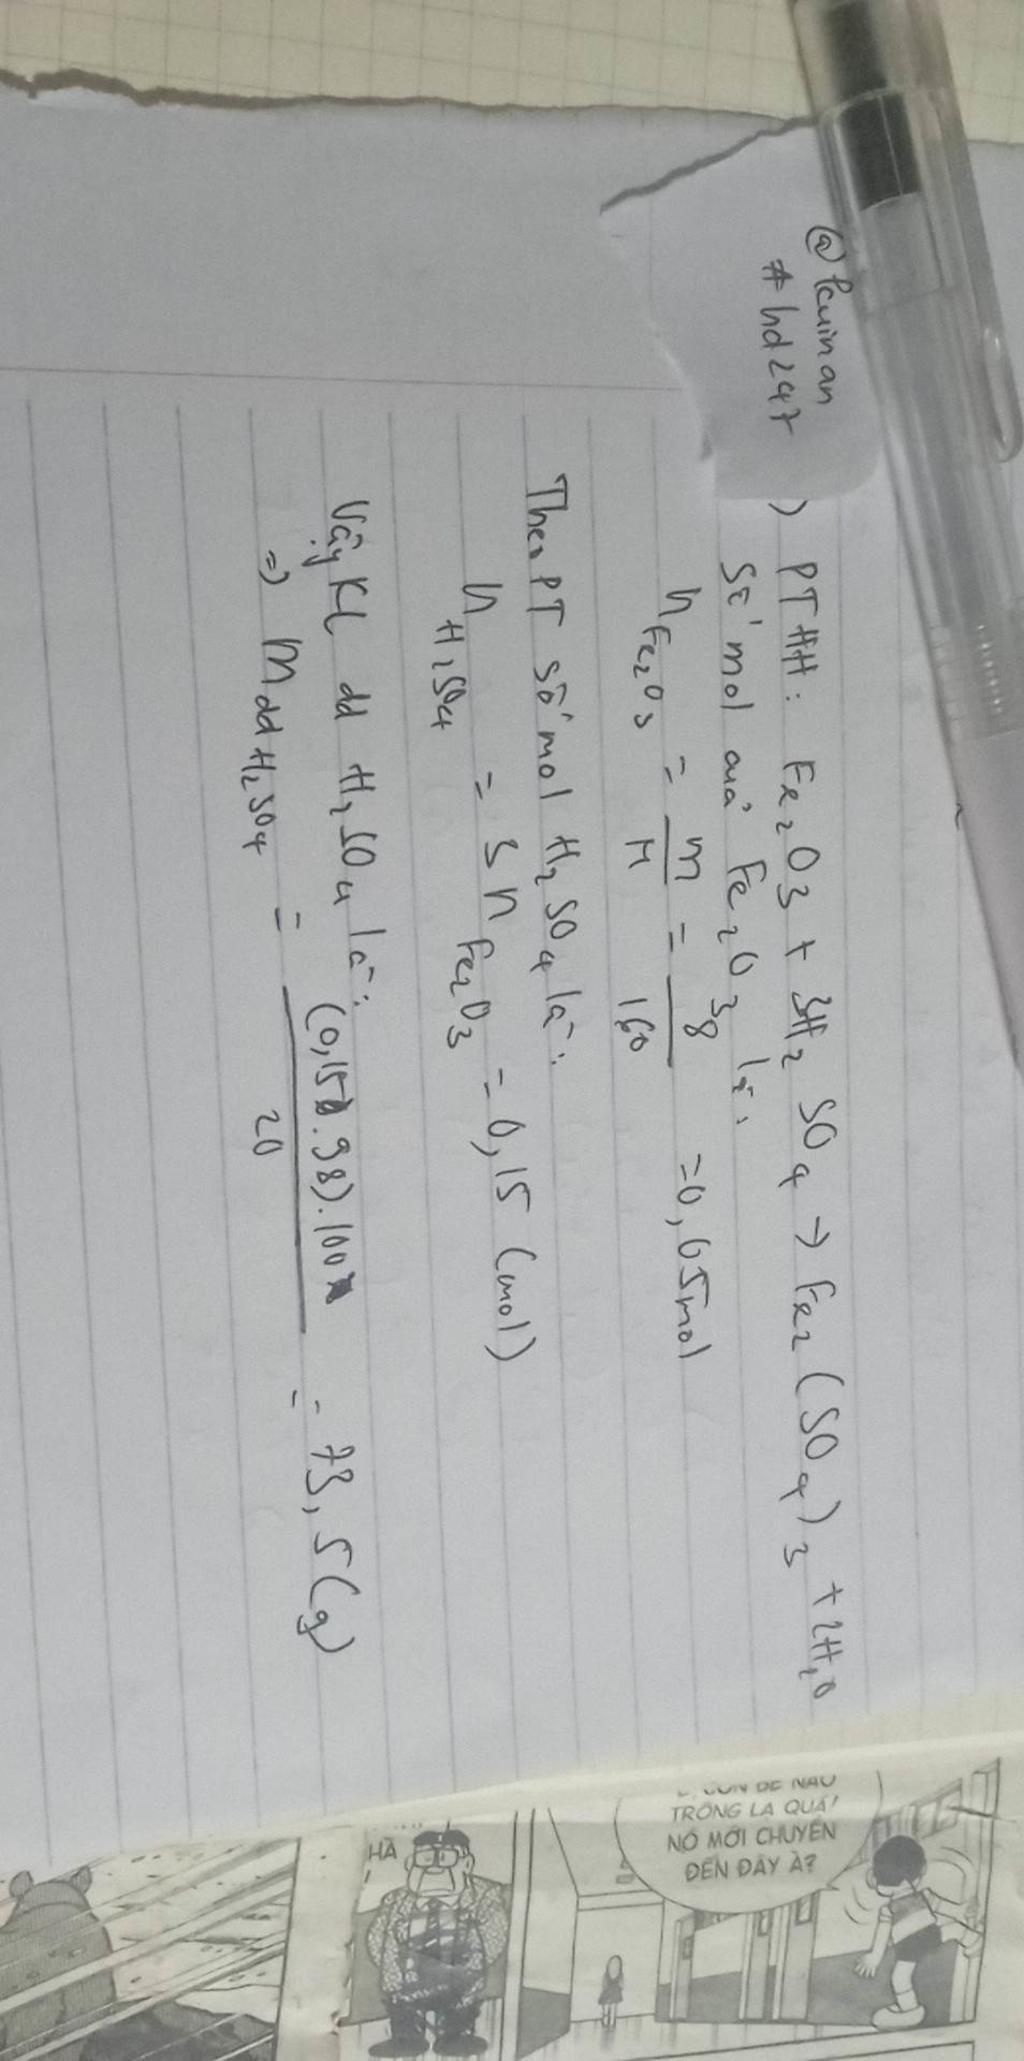 @lcminan
#hd247
) PTHH: Fe2O3 + 3H2SO4 → Fe2(SO4)3 + 2H2O
Số mol của Fe2O3 là:
nFe2O3 = m/M = 8/160 = 0,05mol
Theo PT số mol H2SO4 là:
nH2SO4 = 3nFe2O3 = 0,15 (mol)
Vậy KL dd H2SO4 là:
=> mddH2SO4 = (0,15.98).100/20 = 73,5(g)
TRÔNG LẠ QUÁ!
NÓ MỚI CHUYỂN
ĐẾN ĐÂY À?
HÀ